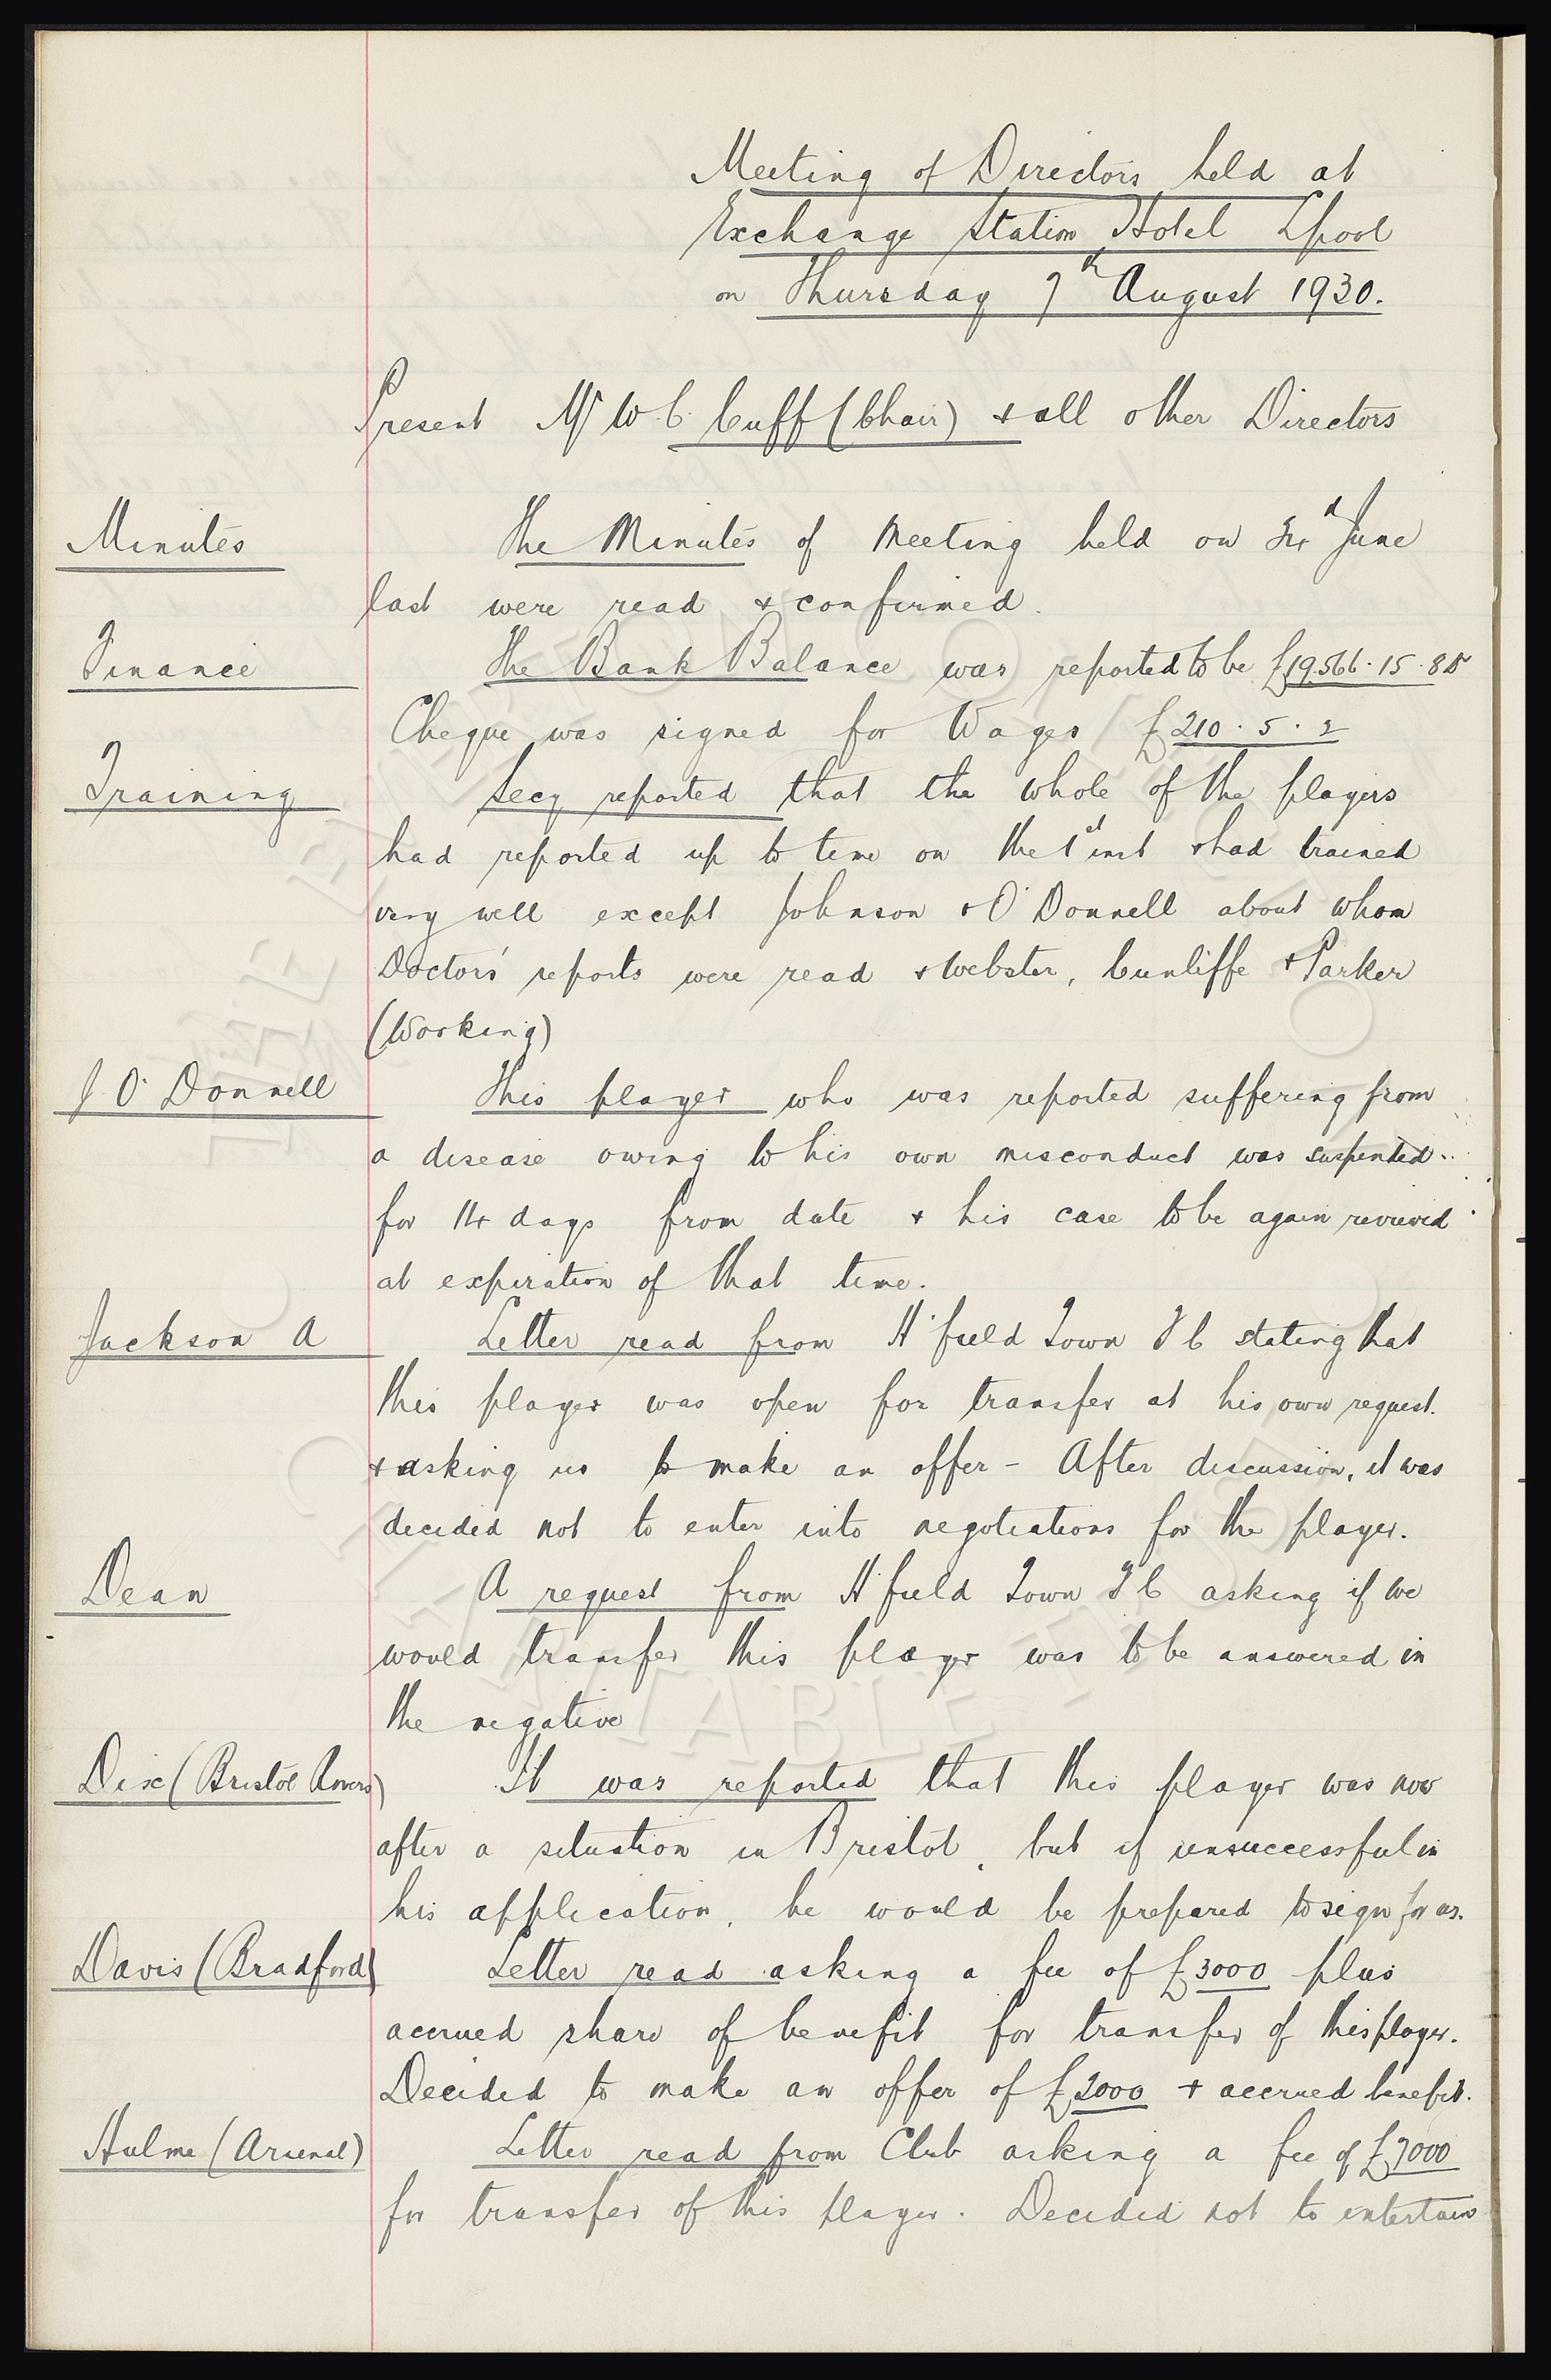 Meeting of Directors held at
Exchange Station Hotel Lpool
on Thursday 7th August 1930.
Present Mr W C Cuff (Chair) & all other Directors
Minutes
The Minutes of Meeting held on June
last were read & confirmed.
Finance
The Bank Balance was reported to be £19.566.15.8
Cheque was signed for Wages £210.5.2
Training
Secy reported that the whole of the players
had reported up to time on the 1st inst & had trained
very well except Johnson & O'Donnell about whom
Doctors' reports were read & Webster, Cunliffe & Parker
(Working)
J O'Donnell
This player who was reported suffering from
a disease owing to his own misconduct was suspended
for 14 days from date & his case to be again reviewed
at expiration of that time.
Jackson A
Letter read from H'field Town F C stating that
this player was open for transfer at his own request.
& asking us to make an offer - After discussion, it was
decided not to enter into negotiations for the player.
Dean
A request from H'field Town F C asking if we
would transfer this player was to be answered in
the negative
Dix (Bristol Rovers)
It was reported that this player was now
after a situation in Bristol, but if unsuccessful in
his application, he would be prepared to sign for us.
Davis (Bradford)
Letter read asking a fee of £3000 plus
accrued share of benefit for transfer of this player.
Decided to make an offer of £2000 + accrued benefit.
Hulme (Arsenal)
Letter read from Club asking a fee of £7000
for transfer of this player. Decided not to entertain